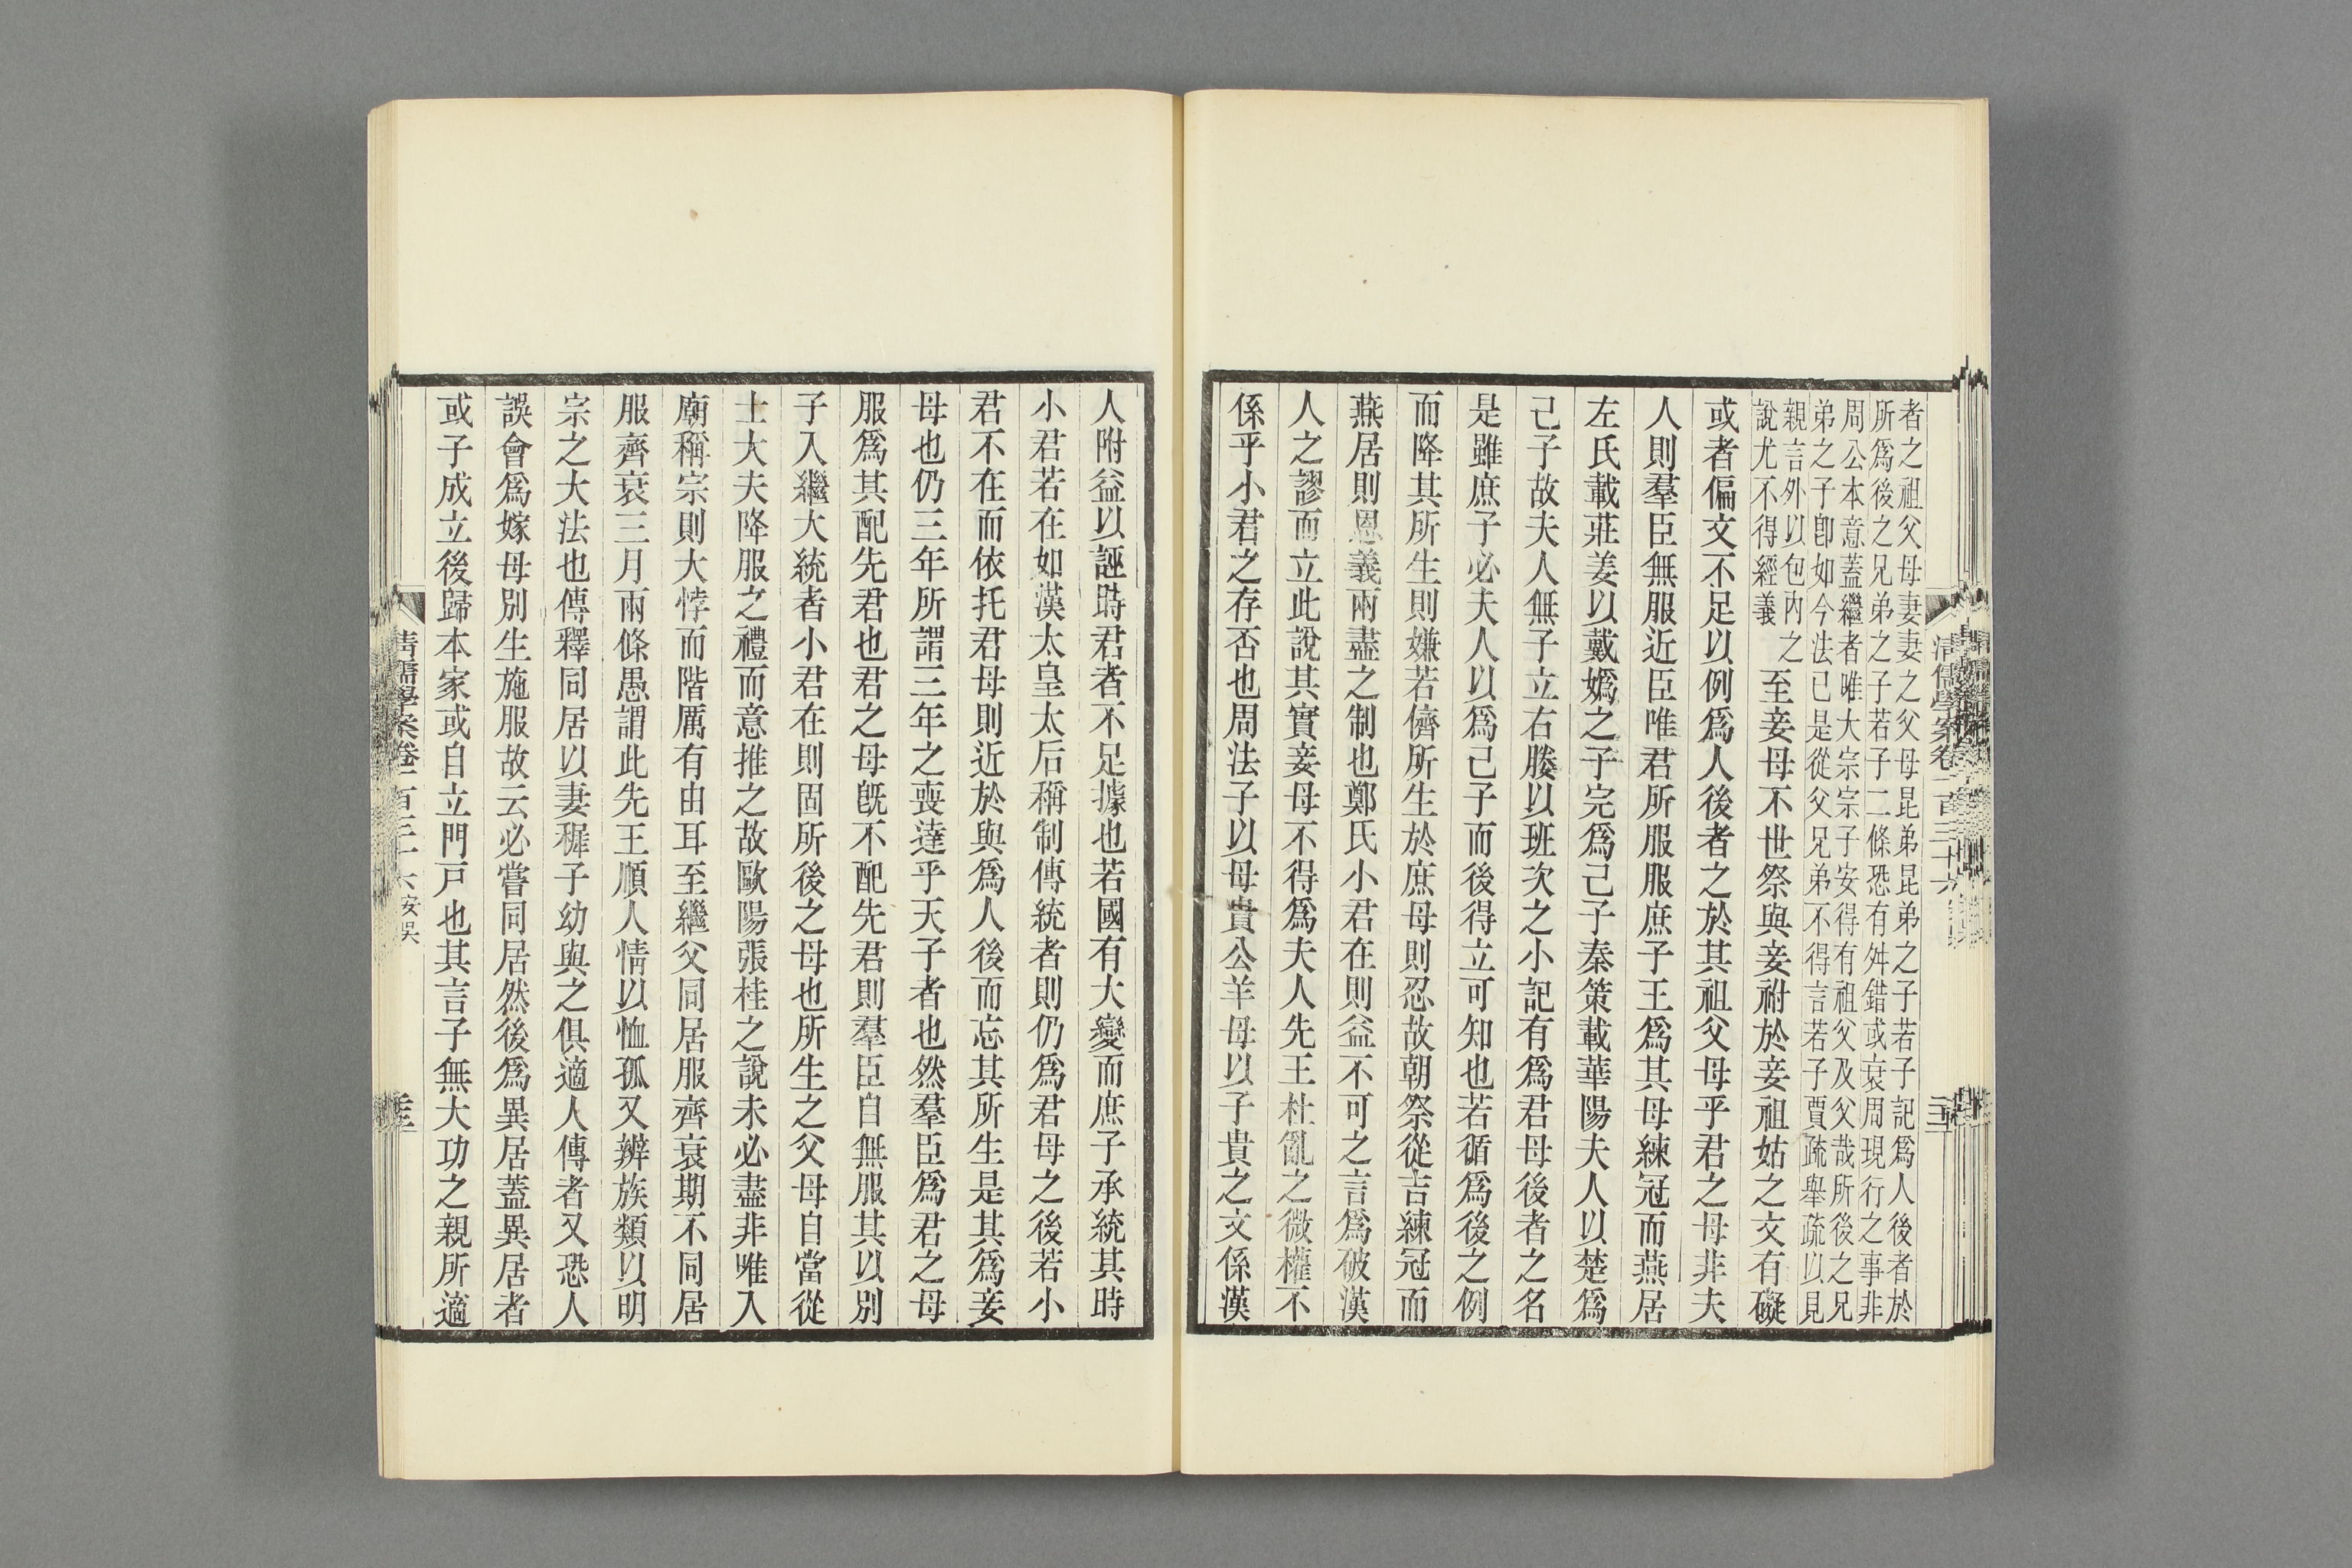 者之祖父母妻妻之父母昆弟昆弟之子若子記爲人後者於
所爲後之兄弟之子若子二條恐有舛錯或衰周現行之事非
周公本意蓋繼者唯大宗宗子安得有祖父及父哉所後之兄
弟之子卽如今法已是從父兄弟不得言若子賈疏舉疏以見
親言外以包內之
說尤不得經義
至妾母不世祭與妾祔於妾祖姑之文有礙
或者偏文不足以例爲人後者之於其祖父母乎君之母非夫
人則羣臣無服近臣唯君所服服庶子王爲其母練冠而燕居
左氏載莊姜以戴嬀之子完爲己子秦策載華陽夫人以楚爲
己子故夫人無子立右媵以班次之小記有爲君母後者之名
是雖庶子必夫人以爲己子而後得立可知也若循爲後之例
而降其所生則嫌若儕所生於庶母則忍故朝祭從吉練冠而
燕居則恩義兩盡之制也鄭氏小君在則益不可之言爲破漢
人之謬而立此說其實妾母不得爲夫人先王杜亂之微權不
係乎小君之存否也周法子以母貴公羊母以子貴之文係漢
人附益以誣時君者不足據也若國有大變而庶子承統其時
小君若在如漢太皇太后稱制傳統者則仍爲君母之後若小
君不在而依托君母則近於與爲人後而忘其所生是其爲妾
母也仍三年所謂三年之喪達乎天子者也然羣臣爲君之母
服爲其配先君也君之母旣不配先君則羣臣自無服其以別
子入繼大統者小君在則固所後之母也所生之父母自當從
士大夫降服之禮而意推之故歐陽張桂之說未必盡非唯入
廟稱宗則大悖而階厲有由耳至繼父同居服齊衰期不同居
服齊衰三月兩條愚謂此先王順人情以恤孤又辨族類以明
宗之大法也傳釋同居以妻穉子幼與之俱適人傳者又恐人
誤會爲嫁母別生施服故云必嘗同居然後爲異居蓋異居者
或子成立後歸本家或自立門戶也其言子無大功之親所適
清儒學案卷一百三十六 安吳